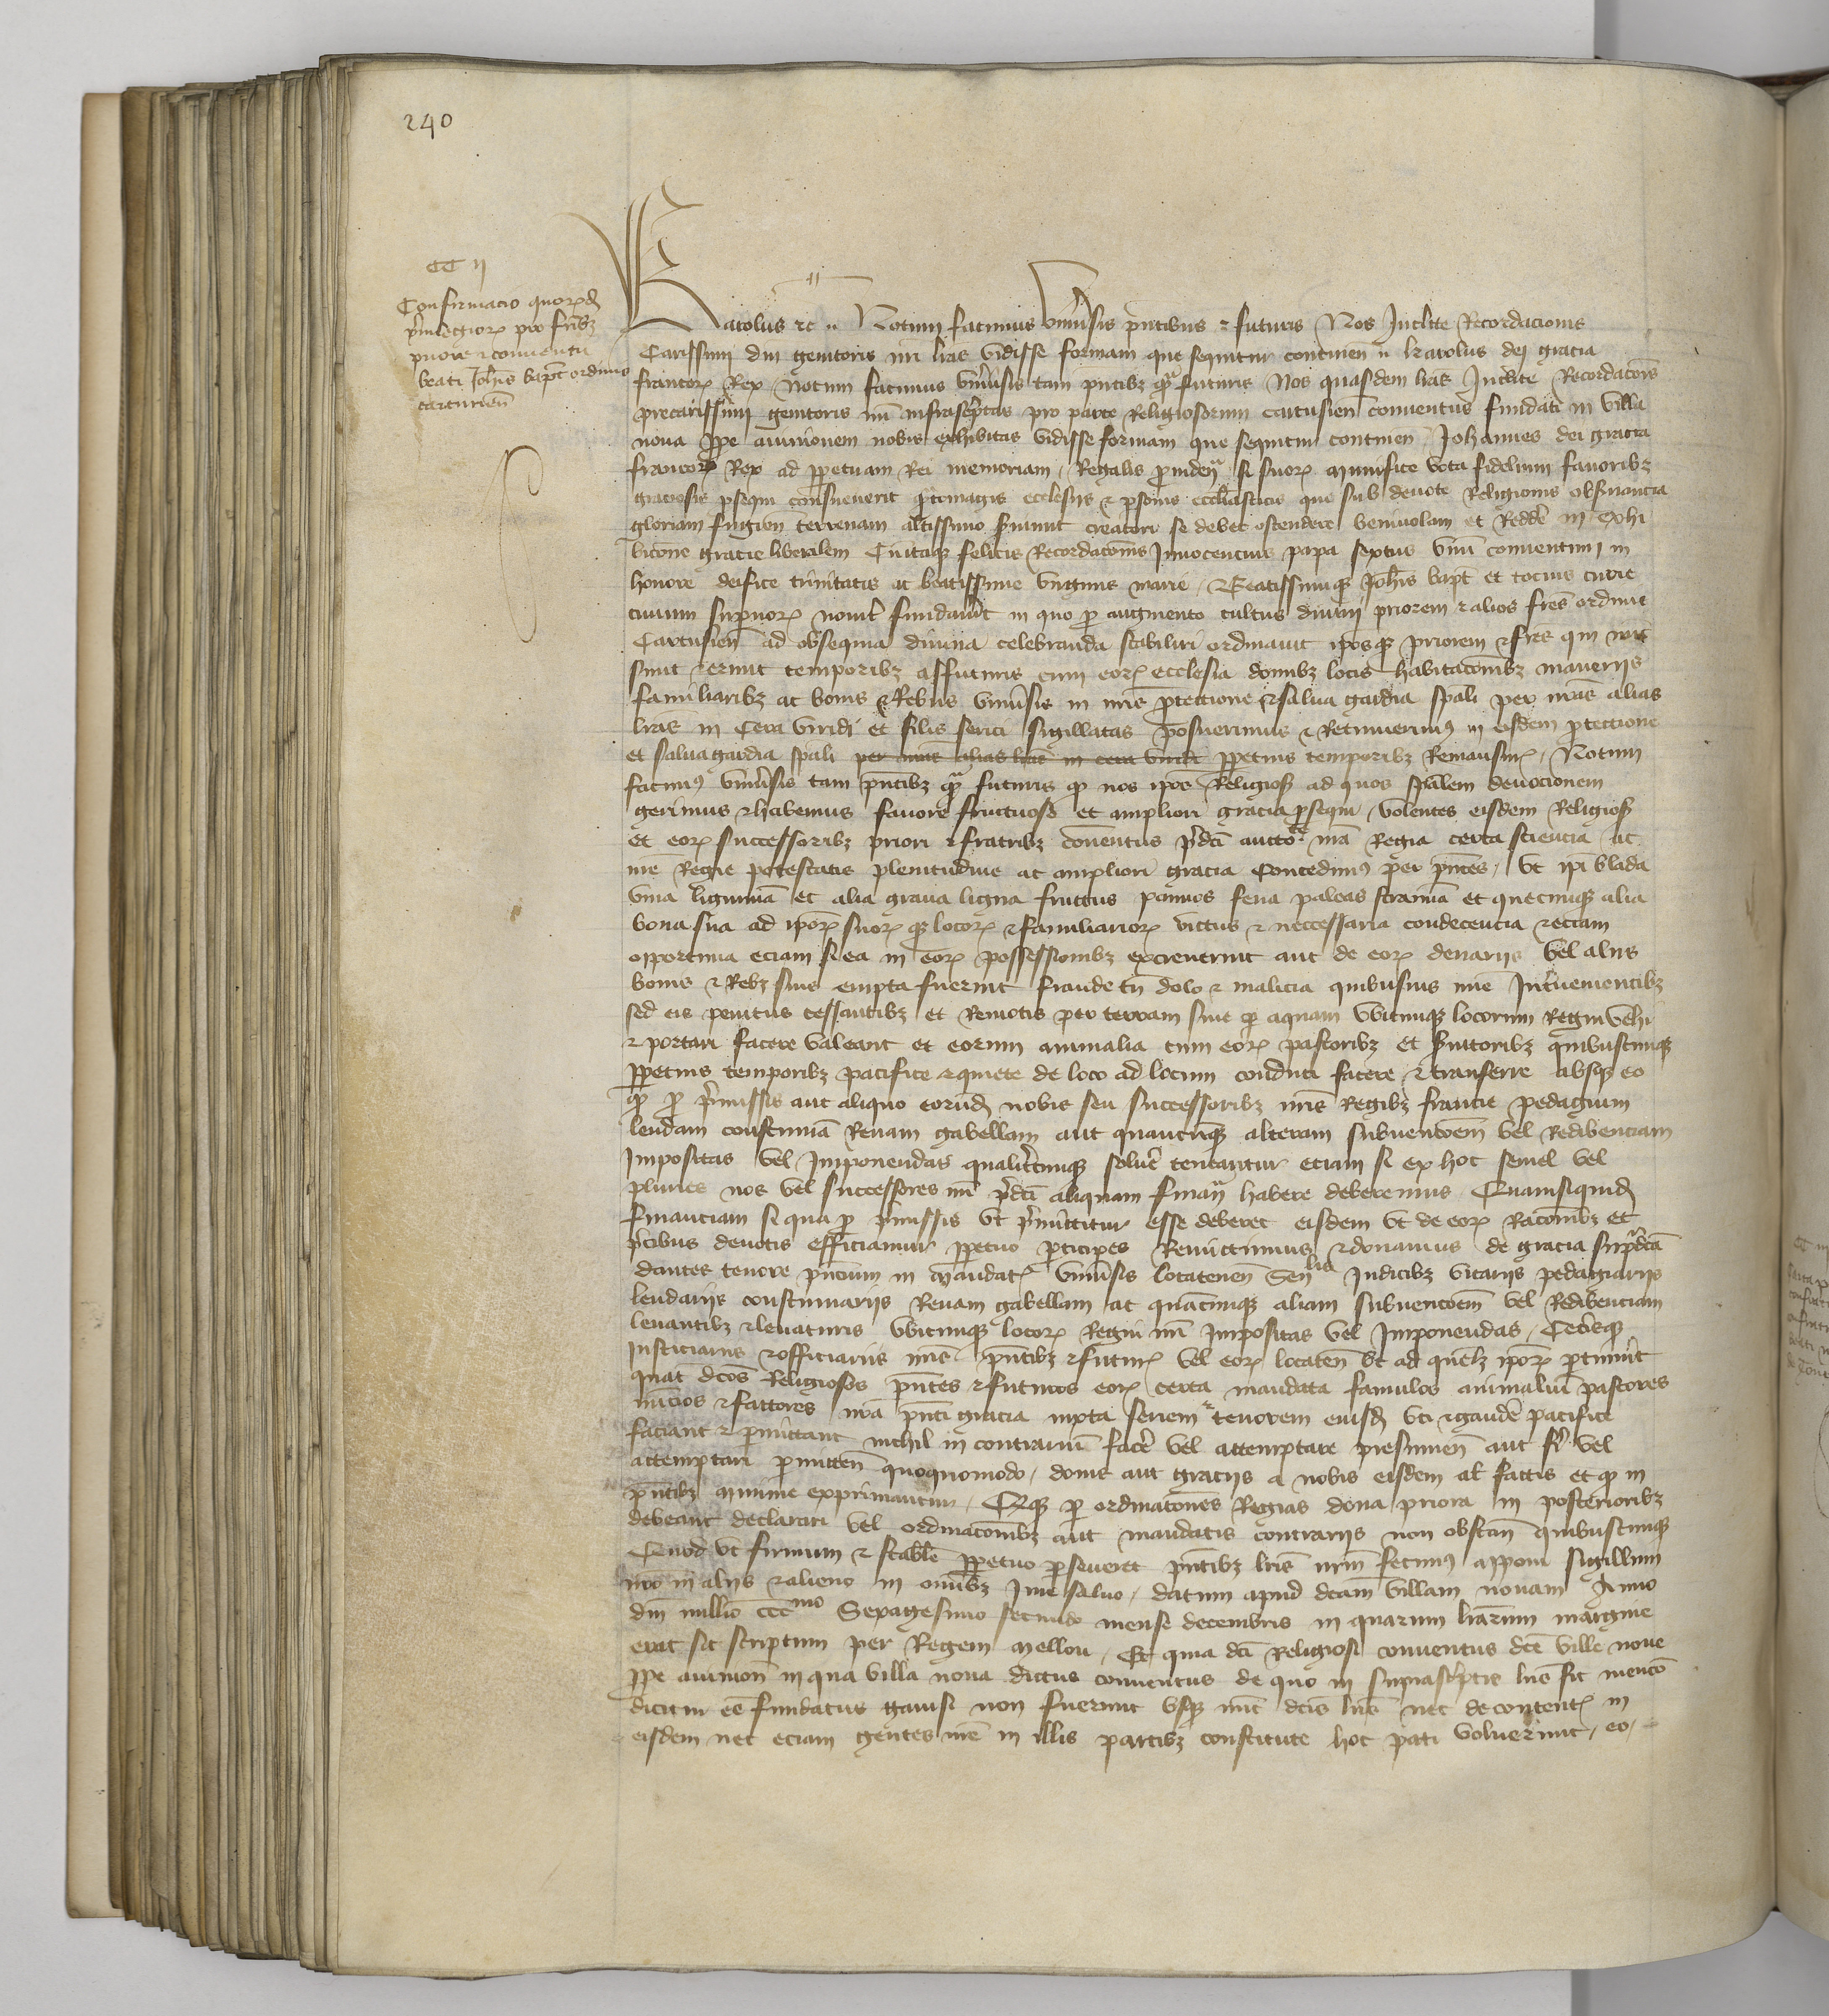 240
CC II
Confirmacio quorumd
privilegiorum pro fribz
priore et conventu
beati Johis bapt ordinis
cartusien
Karolus etc Notum facimus universis presentibus et futuris Nos Inclite Recordacionis
Carissimi dni genitoris nri lras vidisse formam que sequitur continen Karolus dei gracia
francorum Rex Notum facimus universis tam presentibz quam futuris Nos quasdem lras Inclite Recordacois
precarissimi genitoris nri infrascriptas pro parte Religiosorum cartusien conventus fundati in villa
nova prope avinionem nobis exhibitas vidisse formam que sequitur continen Johannes dei gracia
francorum Rex ad perpetuam Rei memoriam Regalis providena si suorum munifice vota fidelium favoribz
graciosis prosequi consueverit pretomagis ecclesiis et personis ecclesiasticis que sub devote Religionis observancia
gloriam fugien terrenam altissimo serviunt creatori se debet ostendere benivolam et Redde in exhi
bicone gracie liberalem Cumque felicis Recordacois Innocencius papa sextus unum conventum in
honore deifice trinitatis ac beatissime virginis marie Beatissimique Johis bapt et tocius curie
civium supernorum noviter fundaverit in quo pro augmento cultus divini priorem et alios fres ordinis
Cartusien ad obsequia divina celebranda stabiliri ordinavit ipos que priorem et fres qui nunc
sunt et erunt temporibz affuturis cum eorum ecclesia domibz locis habitacionibz maneriis
familiaribz ac bonis et Rebus universis in nris protectione et salva gardia spali per nras alias
lras in Cera viridi et filis serici sigillatas posuerimus et Retinuerimus in eisdem protectione
et salvagardia spali per nras alias lras in cera viridi perpetuis temporibz Remansur Notum
facimus universis tam presentibz quam futuris quod nos ipos Religiosos ad quos spalem devocionem
gerimus et habemus favore fructuoso et ampliori gracia prosequi volentes eisdem Religiosis
et eorum successoribz priori et fratribz conventus predci auctote nra Regia certa sciencia ac
nre Regie potestatis plenitudine ac ampliori gracia Concedimus per presentes ut ipi blada
vina legumina et alia grana ligna fructus pannos fena paleas stramina et quecumque alia
bona sua ad iporum suorum que locorum et familiarium victus et neccessaria condecencia et eciam
opportuna eciam si ea in eorum possessionibz excreverint aut de eorum denariis vel aliis
bonis et Rebz suis empta fuerint fraude tn dolo et malicia quibusvis nime Intervenientibz
sed eis penitus cessantibz et Remotis per terram sive per aquam ubicumque locorum Regni vehi
et portari facere valeant et eorum animalia cum eorum pastoribz et servitoribz quibuscumque
perpetuis temporibz pacifice et quiete de loco ad locum conduci facere et transferre absque eo
quod pro premissis aut aliquo eorundem nobis seu successoribz nris Regibz francie pedagium
leudam coustumam Revam gabellam aut quamcumque alteram subvencoem vel Redibenciam
Impositas vel Imponendas qualitercumque solvere teneantur eciam si ex hoc semel vel
pluries nos vel successores nri predci aliquam finana habere deberemus Quamsiquidem
financiam si qua pro premissis ut premittitur esse deberet eisdem ut de eorum Racoibz et
precibus devotis efficiamur perpetuo participes Remittimus et donamus de gracia supradca
dantes tenore presentium in mandatis universis locatenen Senlis Iudicibz vicariis pedagiariis
leudariis coustumariis Revam gabellam ac quacumque aliam subvencoem vel Redibenciam
levantibz et levaturis ubicumque locorum Regni nri Impositas vel Imponendas Ceterisque
Insticiariis et officiariis nris presentibz et futuris vel eorum locaten ut ad quemlibet iporum pertinuerit
quat dcos Religiosos presentes et futuros eorum certa mandata famulos animalium pastores
nuncios et factores nra presenti gracia iuxta seriem et tenorem eiusdem uti et gaudere pacifice
faciant et permittant nichil in contrarium facere vel attemptare presumen aut fieri vel
attemptari permitten quoquomodo donis aut graciis a nobis eisdem al factis et quod in
presentibz minime exprimantur Quod que per ordinacoes Regias dona priora in posterioribz
debeant declarari vel ordinacoibz aut mandatis contrariis non obstan quibuscumque
Quod ut firmum et stabile perpetuo perseveret presentibz lris nrm fecimus apponi sigillum
nro in aliis et alieno in omibz Iure salvo datum apud dcam villam novam Anno
dni millio ccc mo Sexagesimo secundo mense decembris in quarum lrarum margine
erat sic scriptum per Regem mellou Et quia dci Religiosi conventus dce ville nove
prope avinion in qua villa nova dictus conventus de quo in suprascriptis lris fit mencio
dicitur ee fundatus gavisi non fuerunt usque nunc dcis lris nec de contentis in
eisdem nec eciam gentes nre in illis partibz constitute hoc pati voluerint eo